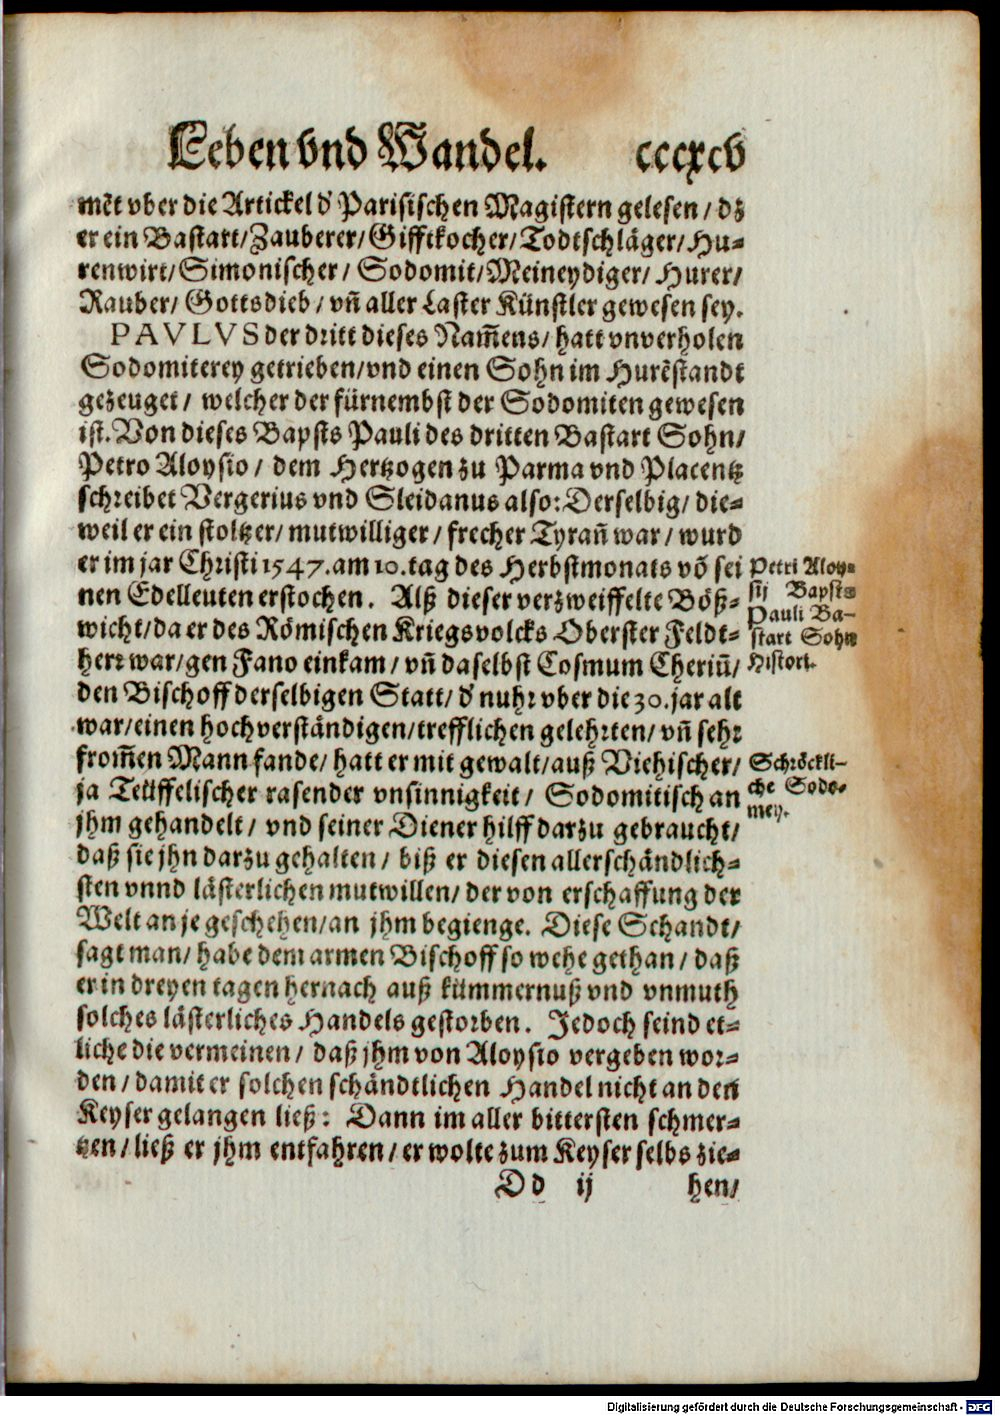 Leben vnd Wandel. cccxcv
mēt vber die Artickel d' Parisischen Magistern gelesen / dz
er ein Bastart/Zauberer/Gifftkocher/Todtschläger/Hu⸗
renwirt/Simonischer/ Sodomit/Meineydiger/ Hurer/
Rauber/ Gottsdieb/ vñ aller Laster Künstler gewesen sey.
PAVLVS der dritt dieses Nam̄ens/ hatt vnverholen
Sodomiterey getrieben/vnd einen Sohn im Hurēstandt
gezeuget/ welcher der fürnembst der Sodomiten gewesen
ist. Von dieses Bapsts Pauli des dritten Bastart Sohn/
Petro Aloysio/ dem Hertzogen zu Parma vnd Placentz
schreibet Vergerius vnd Sleidanus also: Derselbig/ die⸗
weil er ein stoltzer/ mutwilliger/ frecher Tyrañ war/ wurd
er im jar Christi 1547. am 10. tag des Herbstmonats võ sei
nen Edelleuten erstochen. Alß dieser verzweiffelte Böß⸗
wicht/da er des Römischen Kriegsvolcks Oberster Feldt⸗
herr war/gen Fano einkam/ vñ daselbst Cosmum Cheriū/
den Bischoff derselbigen Statt/ d' nuhr vber die 30. jar alt
war/einen hochverständigen/trefflichen gelehrten/ vñ sehr
from̄en Mann fande/ hatt er mit gewalt/auß Viehischer/
ja Teüffelischer rasender vnsinnigkeit/ Sodomitisch an
jhm gehandelt/ vnd seiner Diener hilff darzu gebraucht/
daß sie jhn darzu gehalten/ biß er diesen allerschändlich⸗
sten vnnd lästerlichen mutwillen/ der von erschaffung der
Welt an je geschehen/an jhm begienge. Diese Schandt/
sagt man/ habe dem armen Bischoff so wehe gethan/ daß
er in dreyen tagen hernach auß kümmernuß vnd vnmuth
solches lästerliches Handels gestorben. Jedoch seind et⸗
liche die vermeinen/ daß jhm von Aloysio vergeben wor⸗
den/ damit er solchen schändtlichen Handel nicht an den
Keyser gelangen ließ: Dann im aller bittersten schmer⸗
tzen/ ließ er jhm entfahren/ er wolte zum Keyser selbs zie⸗
Dd ij hen/
Petri Aloy⸗
sij Bapsts
Pauli Ba⸗
start Sohn
Histori.
Schröckli⸗
che Sodo⸗
mey.
Digitalisierung gefördert durch die Deutsche Forschungsgemeinschaft - DFG